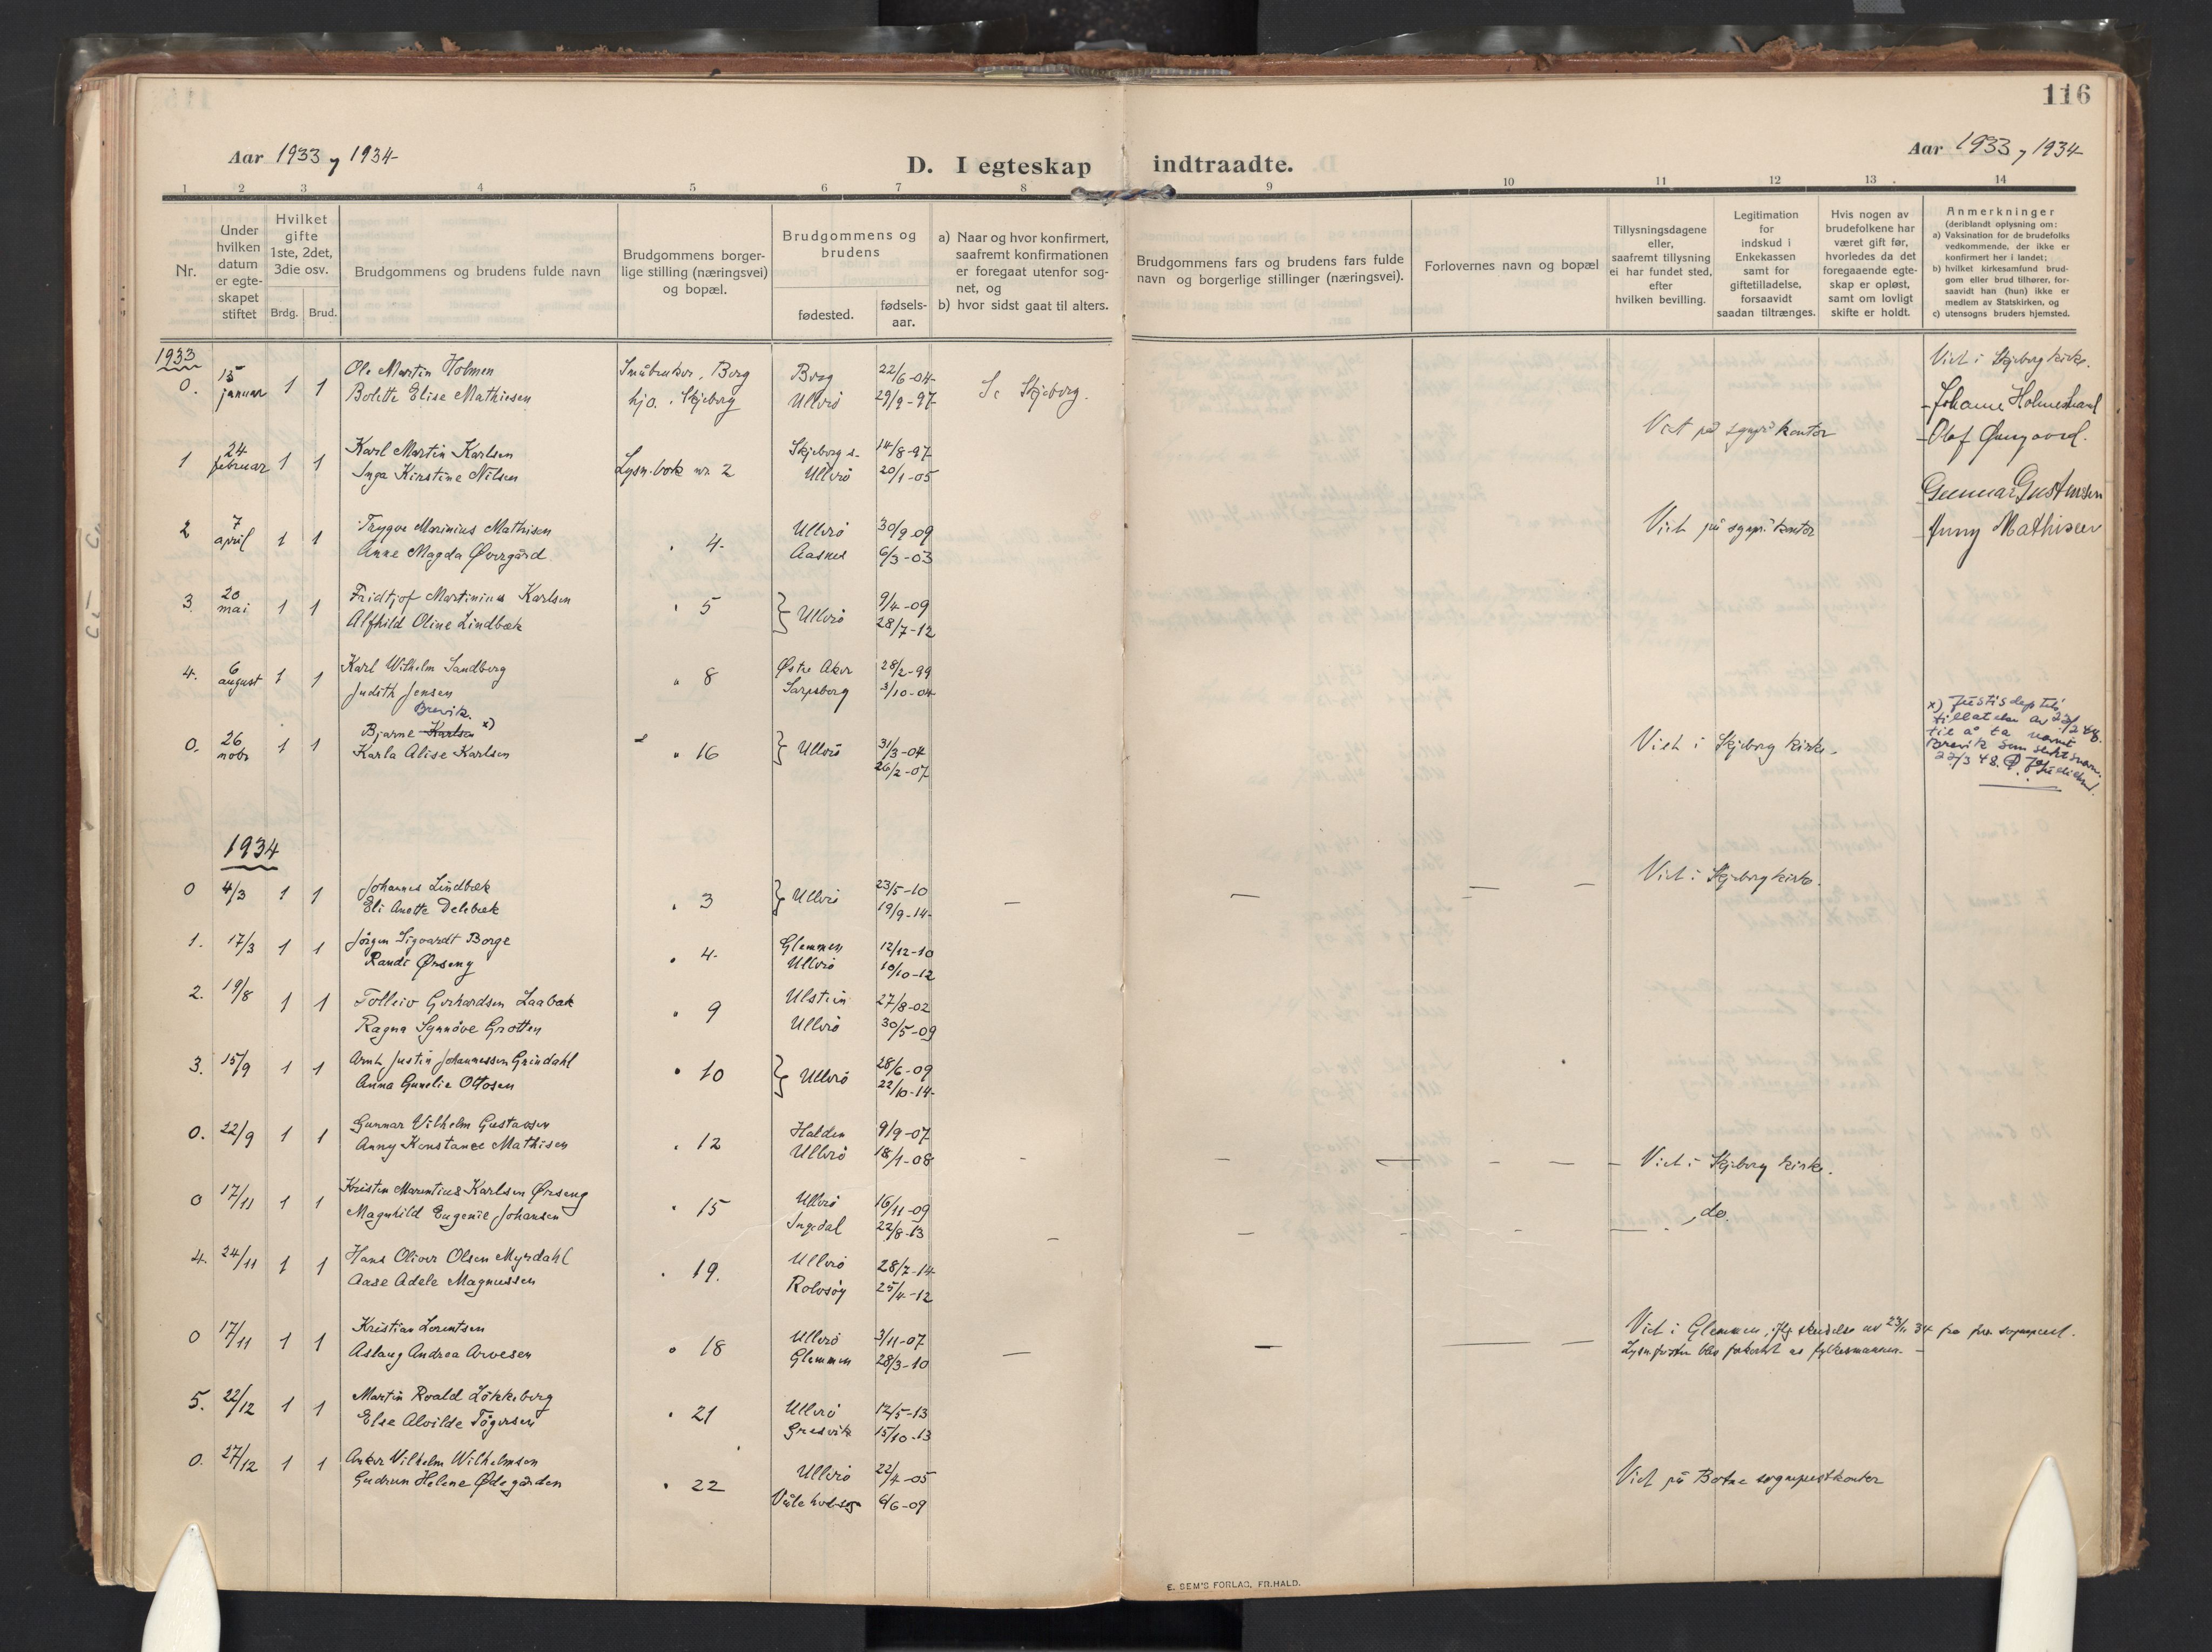 116
Aar 1933 og 1934
D. I egteskap indtraadte.
Aar 1933, 1934
1 2 3 4 5 6 7 8 9 10 11 12 13 14
Nr.
Under hvilken datum er egte-skapet stiftet
Hvilket gifte 1ste, 2det, 3die osv.
Brdg. Brud.
Brudgommens og brudens fulde navn
Brudgommens borger-lige stilling (næringsvei) og bopæl.
Brudgommens og brudens
fødested.
fødsels-aar.
a) Naar og hvor konfirmert, saafremt konfirmationen er foregaat utenfor sog-net, og
b) hvor sidst gaat til alters.
Brudgommens fars og brudens fars fulde navn og borgerlige stillinger (næringsvei).
Forlovernes navn og bopæl
Tillysningsdagene eller, saafremt tillysning ei har fundet sted, efter hvilken bevilling.
Legitimation for indskud i Enkekassen samt for giftetilladelse, forsaavidt saadan tiltrænges.
Hvis nogen av brudefolkene har været gift før, hvorledes da det foregaaende egte-skap er opløst, samt om lovligt skifte er holdt.
Anmerkninger
(deriblandt oplysning om:
a) Vaksination for de brudefolks vedkommende, der ikke er konfirmert her i landet;
b) hvilket kirkesamfund brud-gom eller brud tilhører, for-saavidt han (hun) ikke er medlem av Statskirken, og
c) utensogns bruders hjemsted.
1933
0. 15 januar 1 1 Ole Martin Holmen Småbruker, Borg Borg 22/6-04 Viet i Skjeberg kirke.
Bolette Elise Mathiesen Skjeberg Ullerö 29/9-97 Skjeberg.
Johanne Holmestrand
1 24 februar 1 1 Karl Martin Karlsen Lysn.bok nr. 2 Skjeberg s. 14/8-97 Viet på sognepr. kontor
Inga Kirstine Nilsen Ullerö 20/1-05
Olaf Øvergaard.
Gunnar Gustavsen
2 7 april 1 1 Trygve Marinius Mathisen " 4 Ullerö 30/9 09 Viet på sognepr. kontor
Anne Magda Øvergård Aasnes 6/3-03
Anny Mathisen
3. 20 mai 1 1 Fridtjof Martinius Karlsen " 5 Ullerö 9/4-09
Alfhild Oline Lindbæk 28/7-12
4. 6 august 1 1 Karl Wilhelm Sandberg " 8 Østre Aker 28/2-99
Judith Jensen Sarpsborg 3/10-04
Brevik.
0. 26 nobr 1 1 Bjarne Karlsen x) " 16 Ullerö 31/3-04 Viet i Skjeberg kirke.
Karla Alise Karlsen 26/2-07
x) Justisdeptets
tillatelse av 23/2 48.
til å ta navnet
Brevik som slektsnavn.
22/3 48.
1934
0 4/3 1 1 Johannes Lindbæk " 3 Ullerö 23/5-10 Viet i Skjeberg kirke.
Eli Anette Delebæk 19/9-14
1. 17/3 1 1 Jörgen Sigvardt Borge " 4 Glemmen 12/12-10
Randi Ørseng Ullerö 10/10-12
2. 19/8 1 1 Tolleiv Gerhardsen Laabak " 9 Ulstein 27/8-02
Ragna Synnöve Grotten Ullerö 30/5-09
3. 15/9 1 1 Arnt Justin Johannessen Grindahl " 10 Ullerö 28/6-09
Anna Gunelie Ottosen 22/10-14
0. 22/9 1 1 Gunnar Vilhelm Gustavsen " 12 Halden 9/9-07
Anny Konstance Mathisen Ullerö 18/1-08 Viet i Skjeberg kirke.
0 17/11 1 1 Kristen Marentius Karlsen Ørseng " 15 Ullerö 16/11-09
Magnhild Eugenie Johansen Ingedal 22/8-13 do.
4. 24/11 1 1 Hans Oliver Olsen Myrdahl " 19. Ullerö 28/7-14
Aase Adele Magnussen Rolvsöy 25/4-12
0 17/11 1 1 Kristian Lorentsen " 18 Ullerö 3/11-07 Viet i Glemmen, ifl. skrivelse av 23/11 34 fra
Aslaug Andrea Arvesen Glemmen 28/3-10 Lysn.fristen blev forkortet av fylkesmannen.
5. 22/12 1 1 Martin Roald Lökkeberg " 21 Ullerö 12/5-13
Else Alvilde Tögersen Gresvik 15/10-13
0. 27/12 1 1 Anker Vilhelm Wilhelmsen " 22 Ullerö 22/4-05 Viet på Botne sogneprestkontor
Gudrun Helene Ødegården 6/6-09
E. SEM'S FORLAG, FR.HALD.